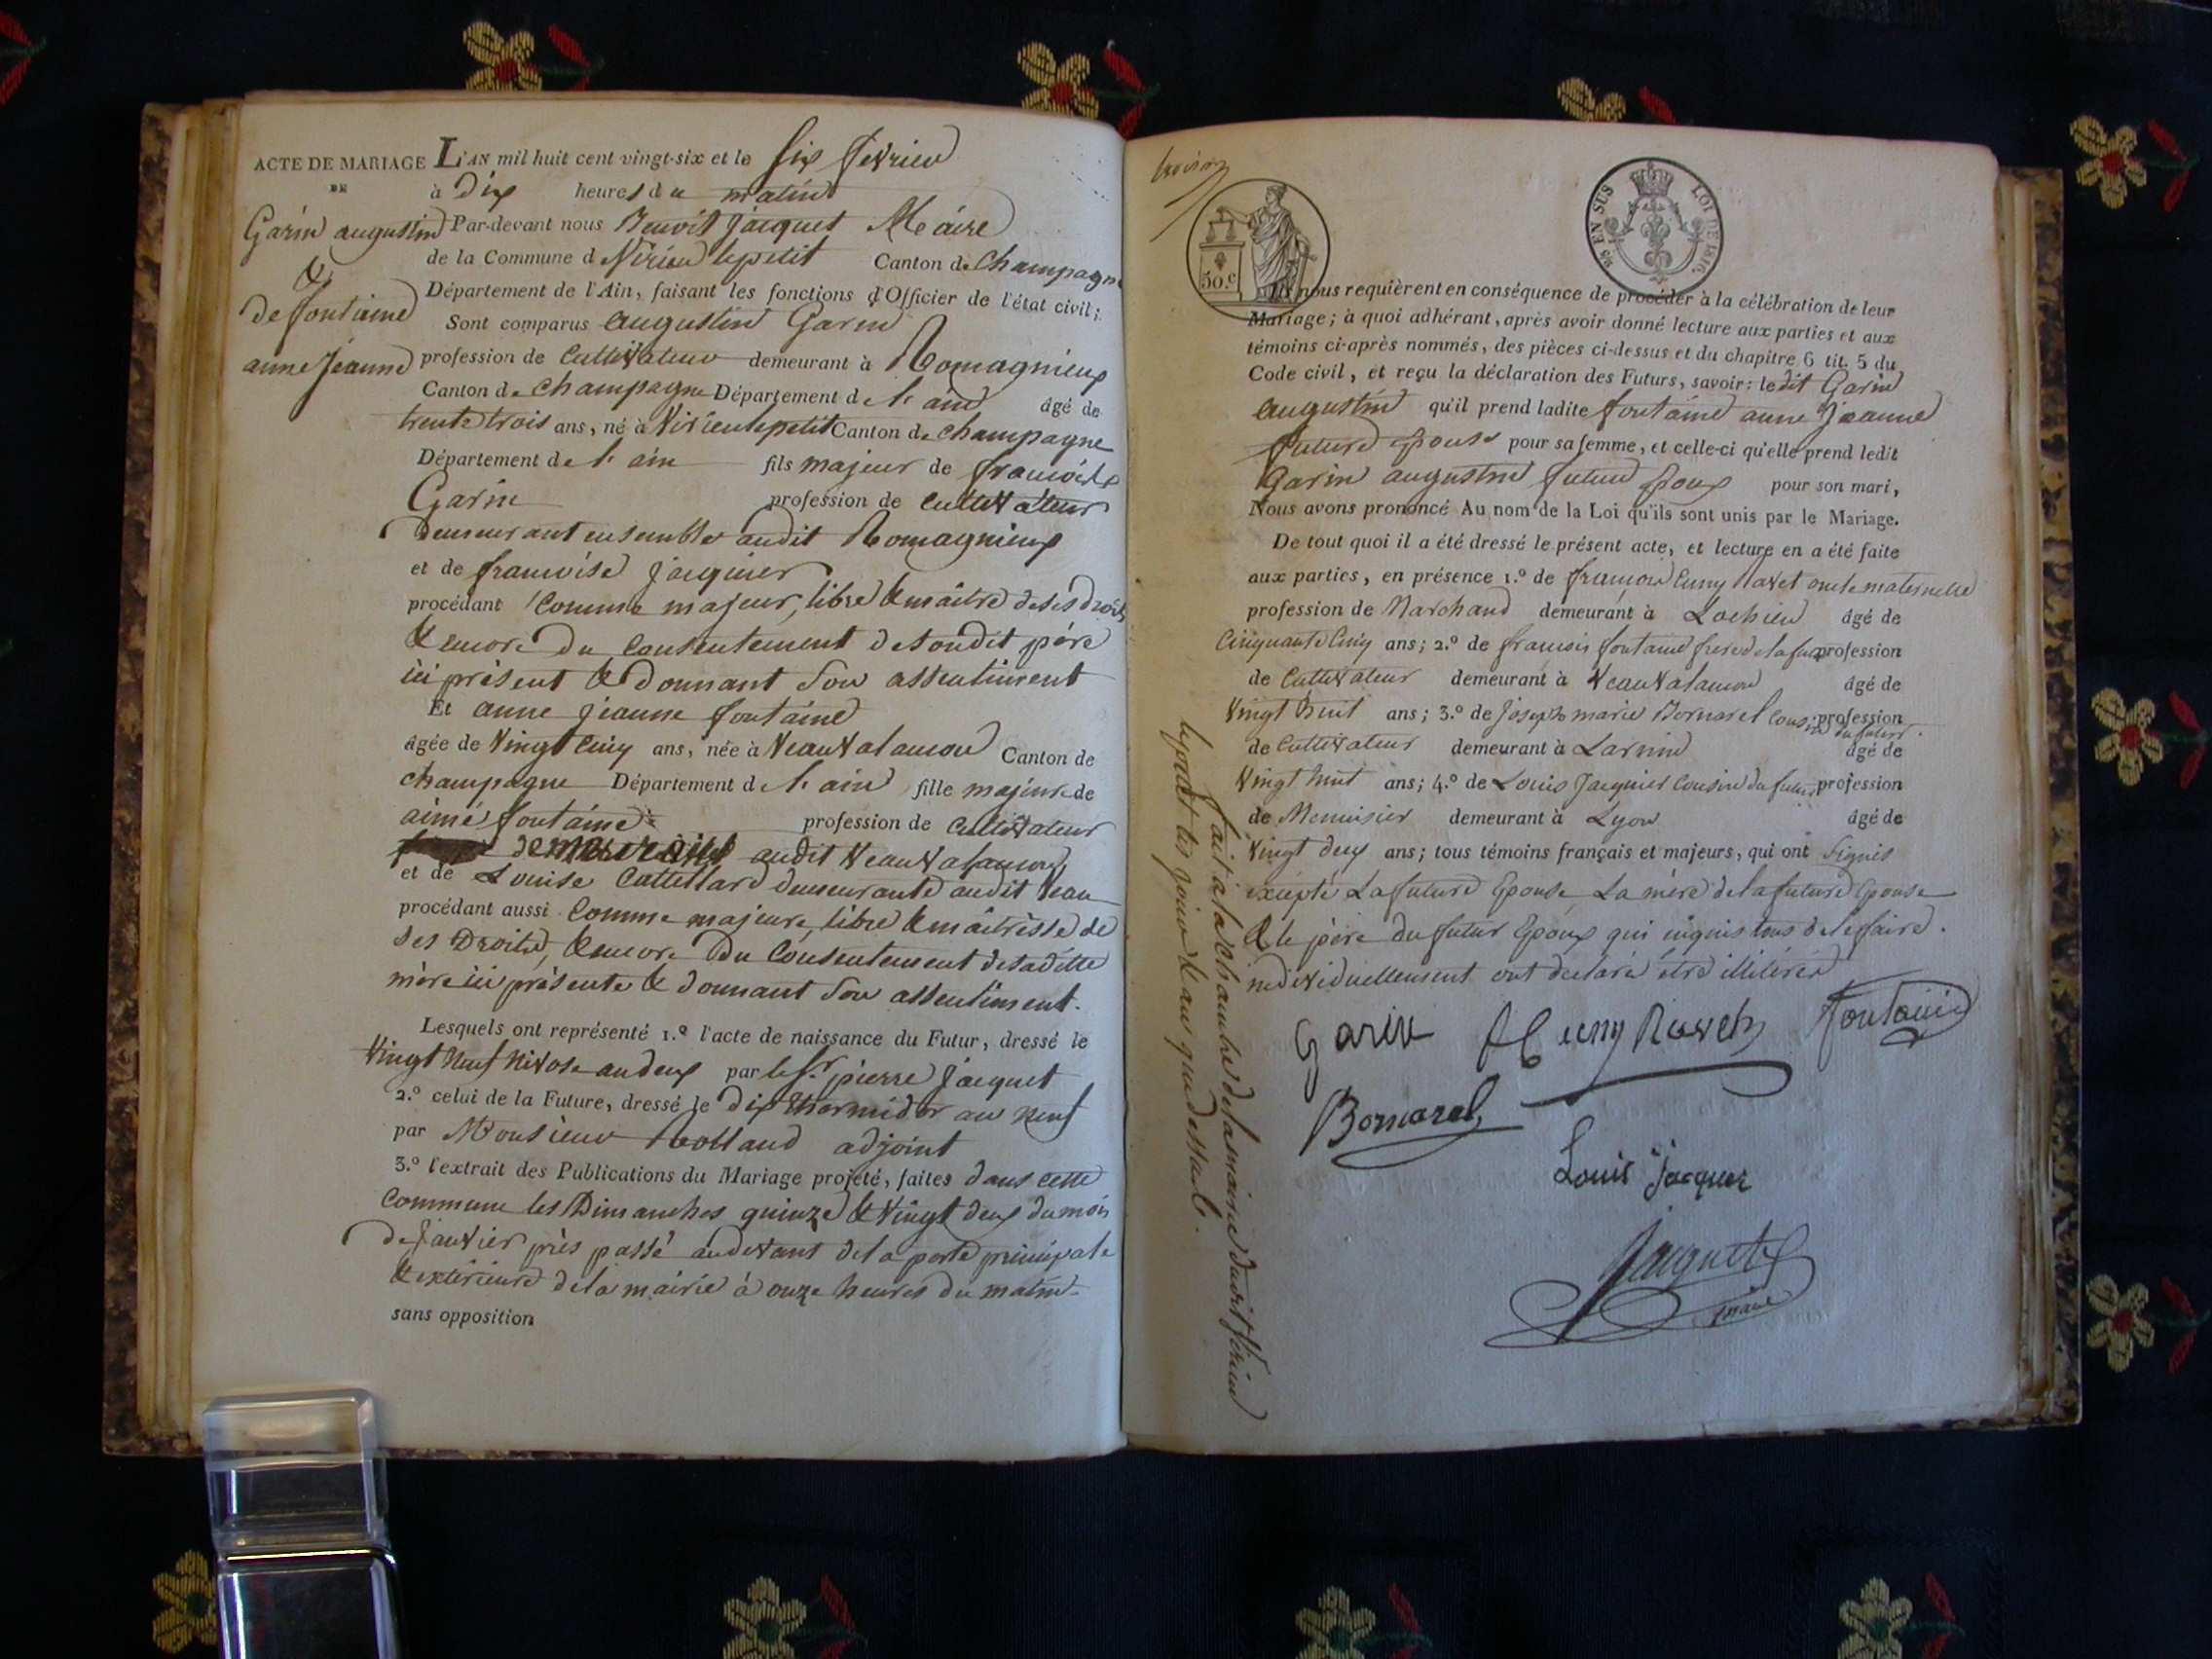 ACTE DE MARIAGE
DE
Garin augustin
&
de fontaine
anne jeanne
L'AN mil huit cent vingt-six et le six fevrier
à dix heures du matin
Par-devant nous Benoit jacquet Maire
de la Commune d Virieu le petit Canton de champagne
Département de l'Ain, faisant les fonctions d'Officier de l'état civil;
Sont comparus augustin Garin
profession de Cultivateur demeurant à Romagnieux
Canton de champagne Département de l'ain âgé de
trente trois ans, né à Virieu le petit Canton de champagne
Département de l'ain fils majeur de francois
Garin profession de cultivateur
demeurant ensemble audit Romagnieux
et de francoise jacquier
procédant comme majeur, libre & maître de ses droits
& encore du consentement de sondit père
ici présent & donnant son assentiment
Et anne jeanne fontaine
âgée de vingt cinq ans, née à veauvalamou Canton de
champagne Département de l'ain fille majeure de
aimé fontaine profession de cultivateur
audit veauvalamou
et de Louise Cattellard demeurante audit veau
procédant aussi comme majeure, libre & maitresse de
ses Droits, & encore du Consentement de sadite
mère ici présente & donnant son assentiment.
Lesquels ont représenté 1.º l'acte de naissance du Futur, dressé le
vingt neuf nivose an deux par le Sr. pierre jacquet
2.º celui de la Future, dressé le dix thermidor an neuf
par Monsieur Rolland adjoint
3.º l'extrait des Publications du Mariage projeté, faites dans cette
commune les Dimanches quinze & vingt deux du mois
de janvier près passé audevant de la porte principale
& extérieure de la mairie à onze heures du matin
sans opposition
50.c
25 EN SUS LOI DE 1816.
Ils nous requièrent en conséquence de procéder à la célébration de leur
Mariage; à quoi adhérant, après avoir donné lecture aux parties et aux
témoins ci-après nommés, des pièces ci-dessus et du chapitre 6 tit. 5 du
Code civil, et reçu la déclaration des Futurs, savoir: le dit Garin
augustin qu'il prend ladite fontaine anne jeanne
future Epouse pour sa femme, et celle-ci qu'elle prend ledit
Garin augustin futur Epoux pour son mari,
Nous avons prononcé Au nom de la Loi qu'ils sont unis par le Mariage.
De tout quoi il a été dressé le présent acte, et lecture en a été faite
aux parties, en présence 1.º de francois Cuny Ravet oncle maternelle
profession de Marchand demeurant à Lochieu âgé de
Cinquante Cinq ans; 2.º de francois fontaine frere de la future profession
de Cultivateur demeurant à veauvalamou âgé de
vingt huit ans; 3.º de joseph marie Bornarel Cousin du futur profession
de Cultivateur demeurant à Larnin âgé de
vingt huit ans; 4.º de Louis jacquier cousin du futur profession
de Menuisier demeurant à Lyon âgé de
vingt deux ans; tous témoins français et majeurs, qui ont signés
excépté La future Epouse La mère de la future Epouse
& le père du futur Epoux qui inquis tous de le faire.
individuellement ont declaré être illitérés
Garin Cuny Ravet fontaine
Bornarel
Louis jacquier
Jacquet
maire
fait à la chambre de la mairie dudit Virieu
lepetit les jour & an que dessus.